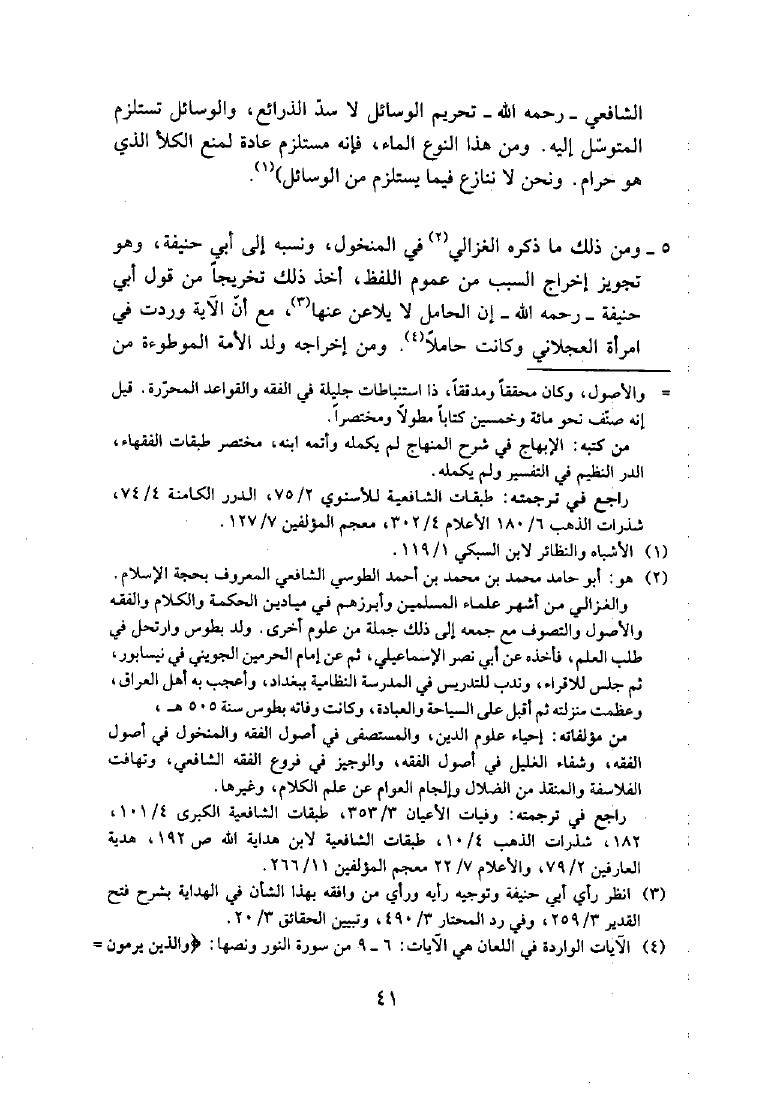 الشافعي ـ رحمه الله ـ تحريم الوسائل لا سدّ الذرائع، والوسائل تستلزم
المتوسّل إليه. ومن هذا النوع الماء، فإنه مستلزم عادة لمنع الكلأ الذي
هو حرام. ونحن لا ننازع فيما يستلزم من الوسائل)(١).
٥ ـ ومن ذلك ما ذكره الغزالي(٢) في المنخول، ونسبه إلى أبي حنيفة، وهو
تجويز إخراج السبب من عموم اللفظ، أخذ ذلك تخريجاً من قول أبي
حنيفة ـ رحمه الله ـ إن الحامل لا يلاعن عنها(٣)، مع أنّ الآية وردت في
امرأة العجلاني وكانت حاملاً(٤). ومن إخراجه ولد الأمة الموطوءة من
= والأصول، وكان محققاً ومدققاً، ذا استنباطات جليلة في الفقه والقواعد المحرّرة. قيل
إنه صنّف نحو مائة وخمسين كتاباً مطولاً ومختصراً.
من كتبه: الإبهاج في شرح المنهاج لم يكمله وأتمه ابنه، مختصر طبقات الفقهاء،
الدر النظيم في التفسير ولم يكمله.
راجع في ترجمته: طبقات الشافعية للأسنوي ٧٥/٢، الدرر الكامنة ٧٤/٤،
شذرات الذهب ١٨٠/٦ الأعلام ٣٠٢/٤، معجم المؤلفين ١٢٧/٧.
(١) الأشباه والنظائر لابن السبكي ١١٩/١.
(٢) هو: أبو حامد محمد بن محمد بن أحمد الطوسي الشافعي المعروف بحجة الإسلام.
والغزالي من أشهر علماء المسلمين وأبرزهم في ميادين الحكمة والكلام والفقه
والأصول والتصوف مع جمعه إلى ذلك جملة من علوم أخرى. ولد بطوس وارتحل في
طلب العلم، فأخذه عن أبي نصر الإسماعيلي، ثم عن إمام الحرمين الجويني في نيسابور،
ثم جلس للاقراء، وندب للتدريس في المدرسة النظامية ببغداد، وأعجب به أهل العراق،
وعظمت منزلته ثم أقبل على السياحة والعبادة، وكانت وفاته بطوس سنة ٥٠٥ هـ،
من مؤلفاته: إحياء علوم الدين، والمستصفى في أصول الفقه والمنخول في أصول
الفقه، وشفاء الغليل في أصول الفقه، والوجيز في فروع الفقه الشافعي، وتهافت
الفلاسفة والمنقذ من الضلال وإلجام العوام عن علم الكلام، وغيرها.
راجع في ترجمته: وفيات الأعيان ٣٥٣/٣، طبقات الشافعية الكبرى ١٠١/٤،
١٨٢، شذرات الذهب ١٠/٤، طبقات الشافعية لابن هداية الله ص ١٩٢، هدية
العارفين ٧٩/٢، والأعلام ٢٢/٧ معجم المؤلفين ٢٦٦/١١.
(٣) انظر رأي أبي حنيفة وتوجيه رأيه ورأي من وافقه بهذا الشأن في الهداية بشرح فتح
القدير ٢٥٩/٣، وفي رد المحتار ٤٩٠/٣، وتبيين الحقائق ٢٠/٣.
(٤) الآيات الواردة في اللعان هي الآيات: ٦ ـ ٩ من سورة النور ونصها: ﴿والذين يرمون =
٤١